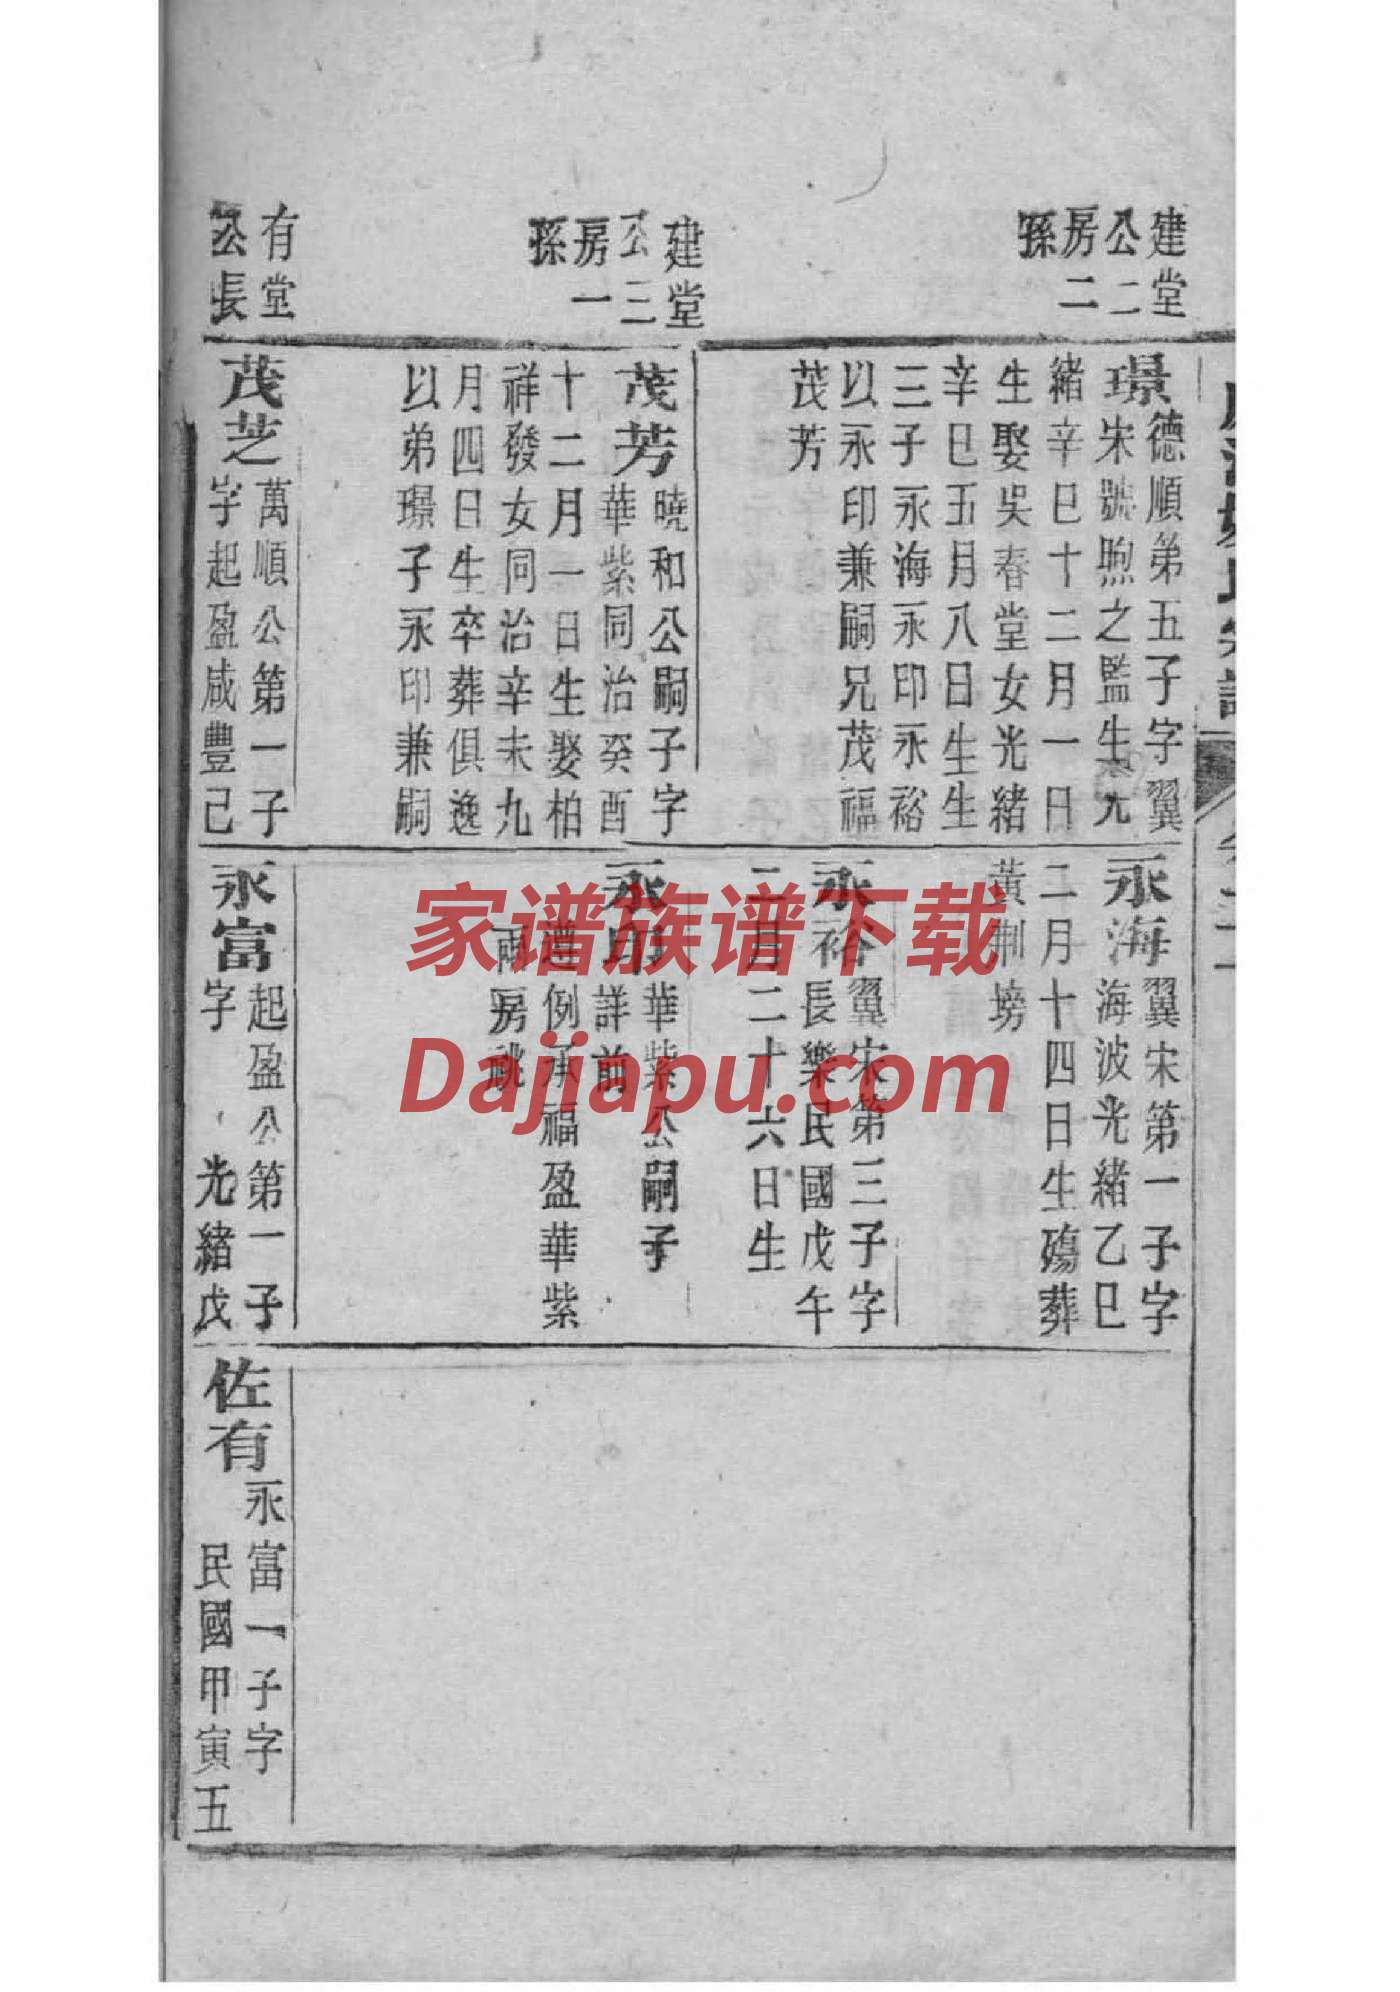 建堂
公二
房二
孫
建堂
公三
房一
孫
有堂
公長
璟德順第五子字翼
宋號煦之監生光
緒辛巳十二月一日
生娶吳春堂女光緒
辛巳五月八日生生
三子永海永印永裕
以永印兼嗣兄茂福
茂芳
茂芳曉和公嗣子字
華紫同治癸酉
十二月一日生娶柏
祥發女同治辛未九
月四日生卒葬俱逸
以弟璟子永印兼嗣
茂芝萬順公第一子
字起盈咸豐己
永海翼宋第一子字
海波光緒乙巳
二月十四日生殤葬
黃荆塝
永裕翼宋第三子字
長樂民國戊午
二月二十六日生
永印華紫公嗣子
詳前
遵例承福盈華紫
兩房祧
永富起盈公第一子
字 光緒戊
佐有永富一子字
民國甲寅五
家谱族谱下载
Dajiapu.com